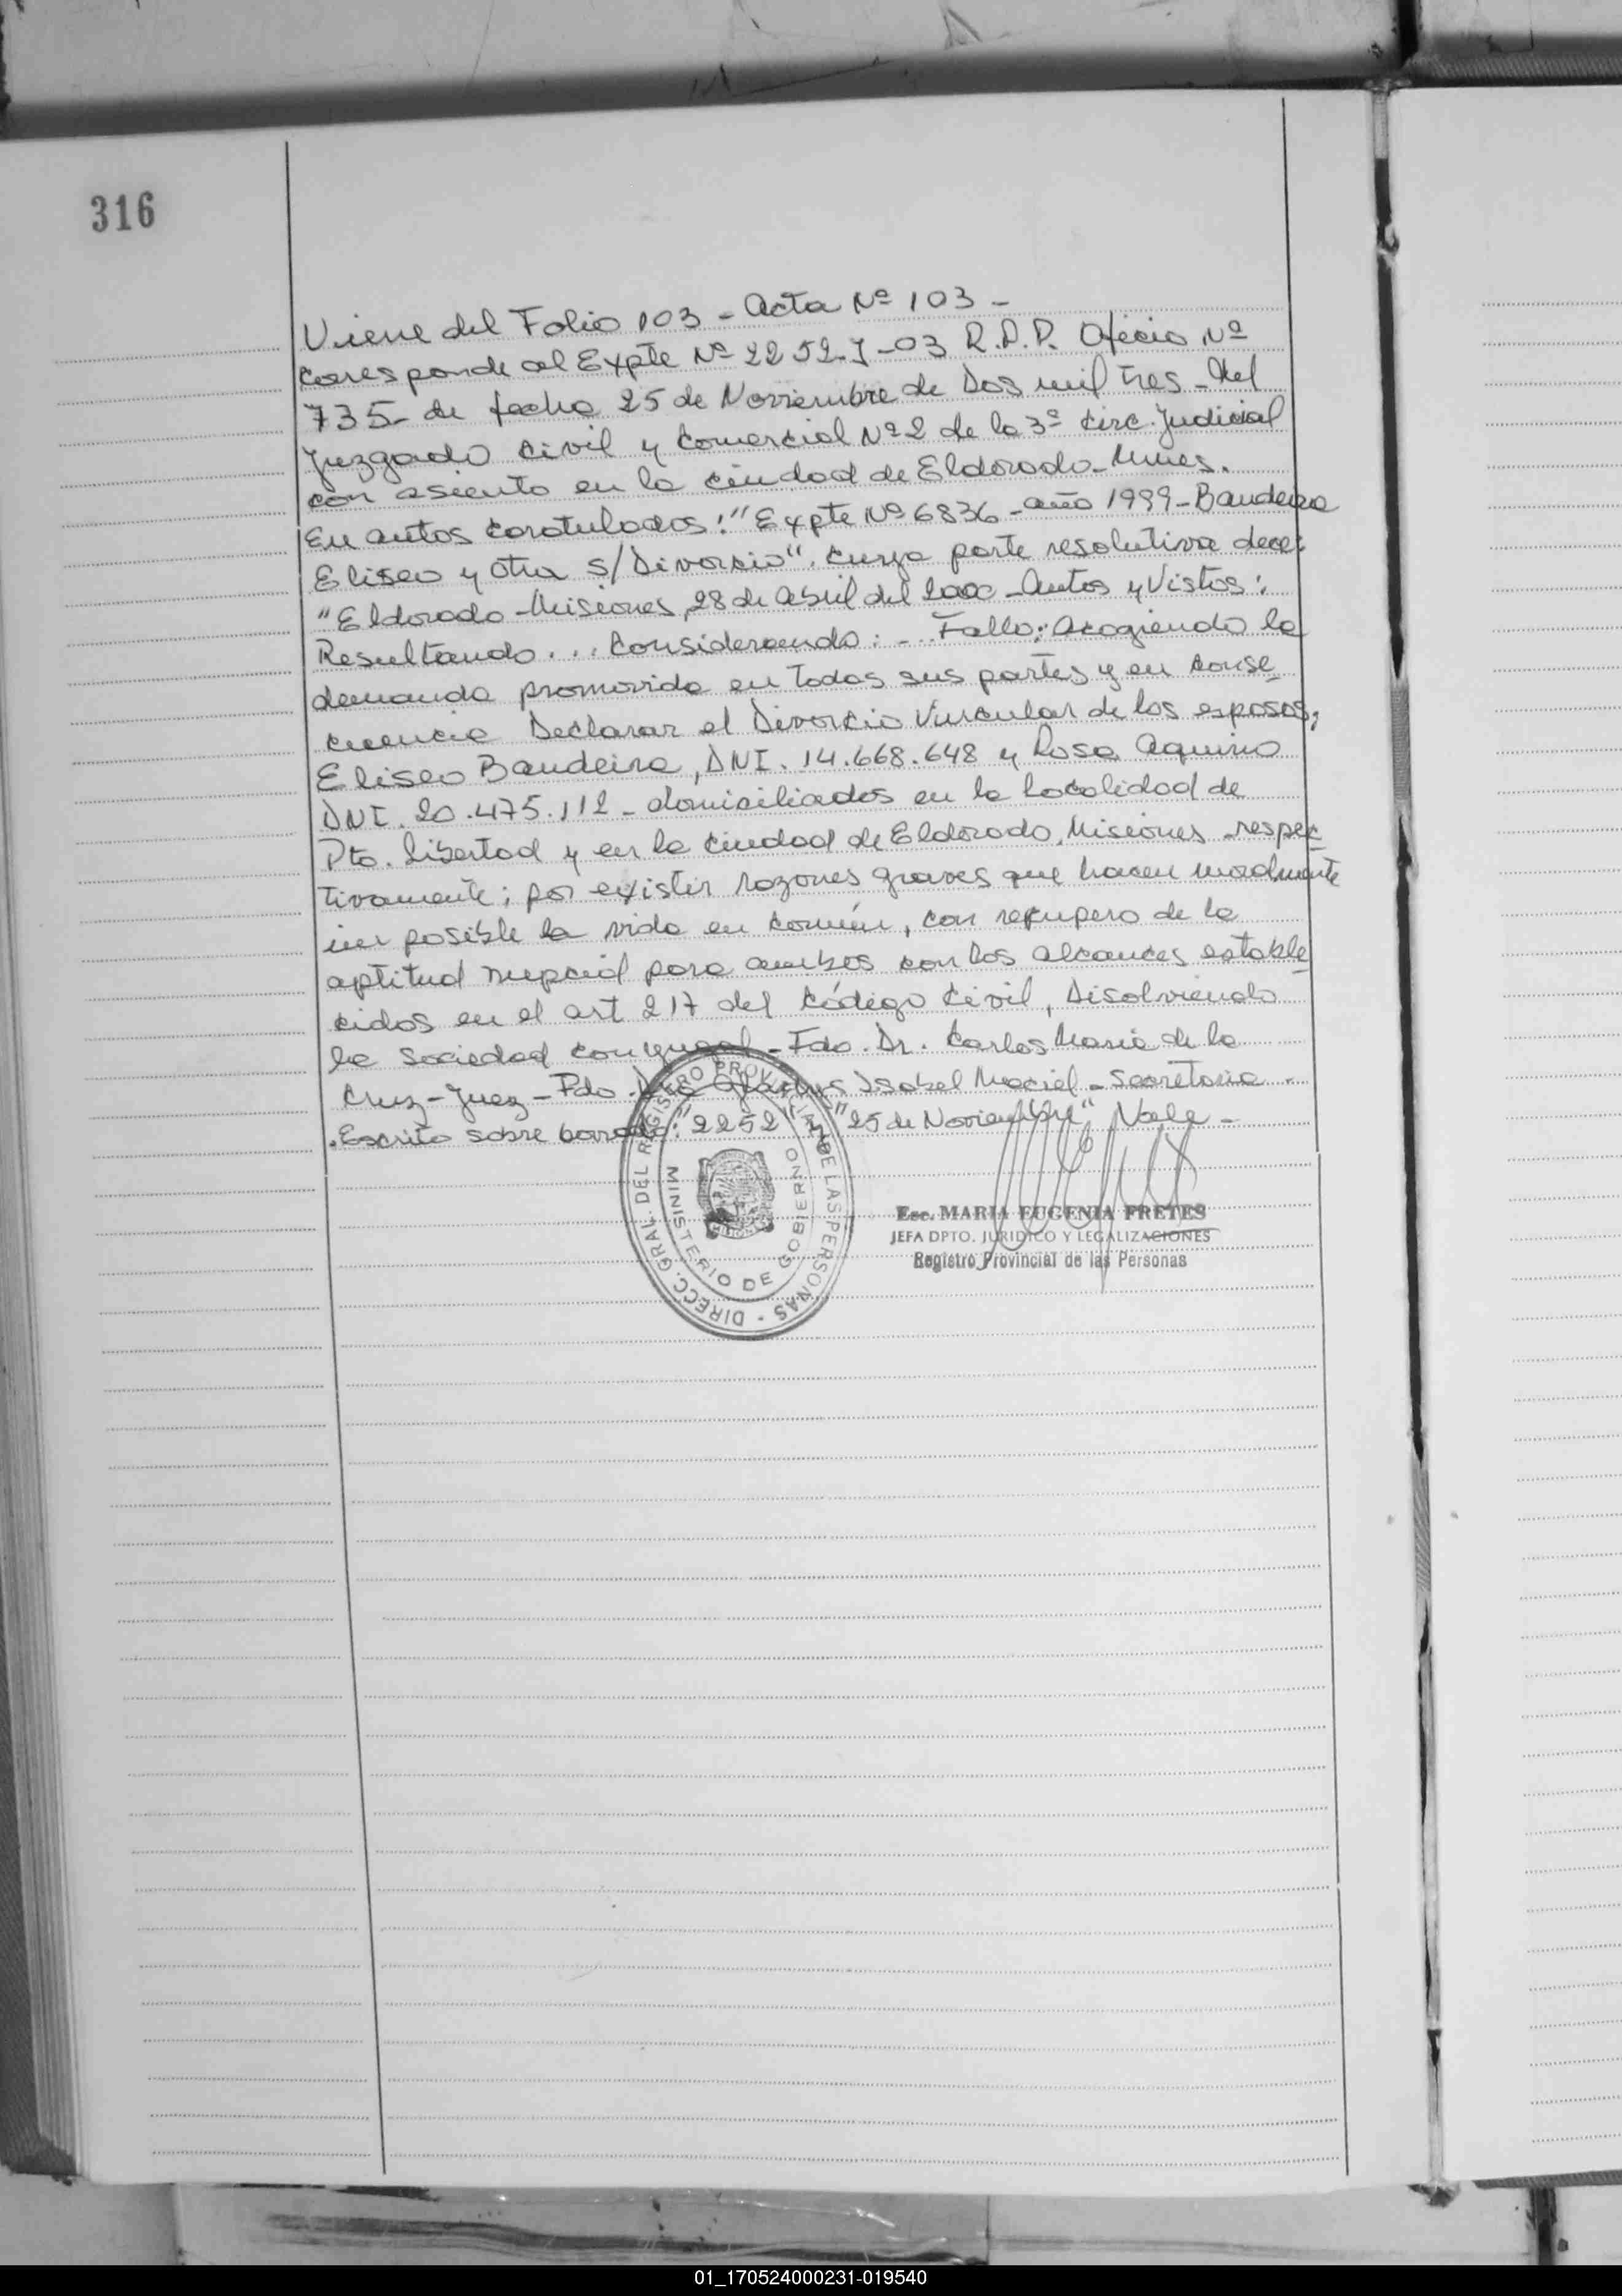 316
Viene del Folio 103 - Acta Nº 103 -
Corresponde al Expte Nº 2252-J-03 R.P.P. Oficio Nº
735- de fecha 25 de Noviembre de Dos mil tres - del
Juzgado Civil y Comercial Nº 2 de la 3º Circ. Judicial
con asiento en la ciudad de Eldorado - Mnes.
En autos caratulados: "Expte Nº 6836 - año 1999 - Bandeira
Eliseo y Otra s/Divorcio", cuya parte resolutiva dice:
"Eldorado - Misiones, 28 de Abril del 2000 - Autos y Vistos:
Resultando... Considerando: - .. Fallo: Acogiendo la
demanda promovida en todas sus partes y en conse-
cuencia Declarar el Divorcio Vincular de los esposos,
Eliseo Bandeira, DNI. 14.668.648 y Rosa Aquino
DNI. 20.475.112 - domiciliados en la Localidad de
Pto. Libertad y en la ciudad de Eldorado, Misiones - respec-
tivamente; por existir razones graves que hacen moralmente
imposible la vida en común, con recupero de la
aptitud nupcial para ambos con los alcances estable-
cidos en el art 217 del Código Civil, Disolviendo
la Sociedad conyugal - Fdo. Dr. Carlos Maria de la
Cruz - Juez - Fdo. Dra Gladys Isabel Maciel - Secretaria -
.Escrito sobre borrado: "2252" "25 de Noviembre" Vale -
DIRECC. GRAL. DEL REGISTRO PROVINCIAL DE LAS PERSONAS -
MINISTERIO DE GOBIERNO
Esc. MARIA EUGENIA FRETES
JEFA DPTO. JURIDICO Y LEGALIZACIONES
Registro Provincial de las Personas
01_170524000231-019540